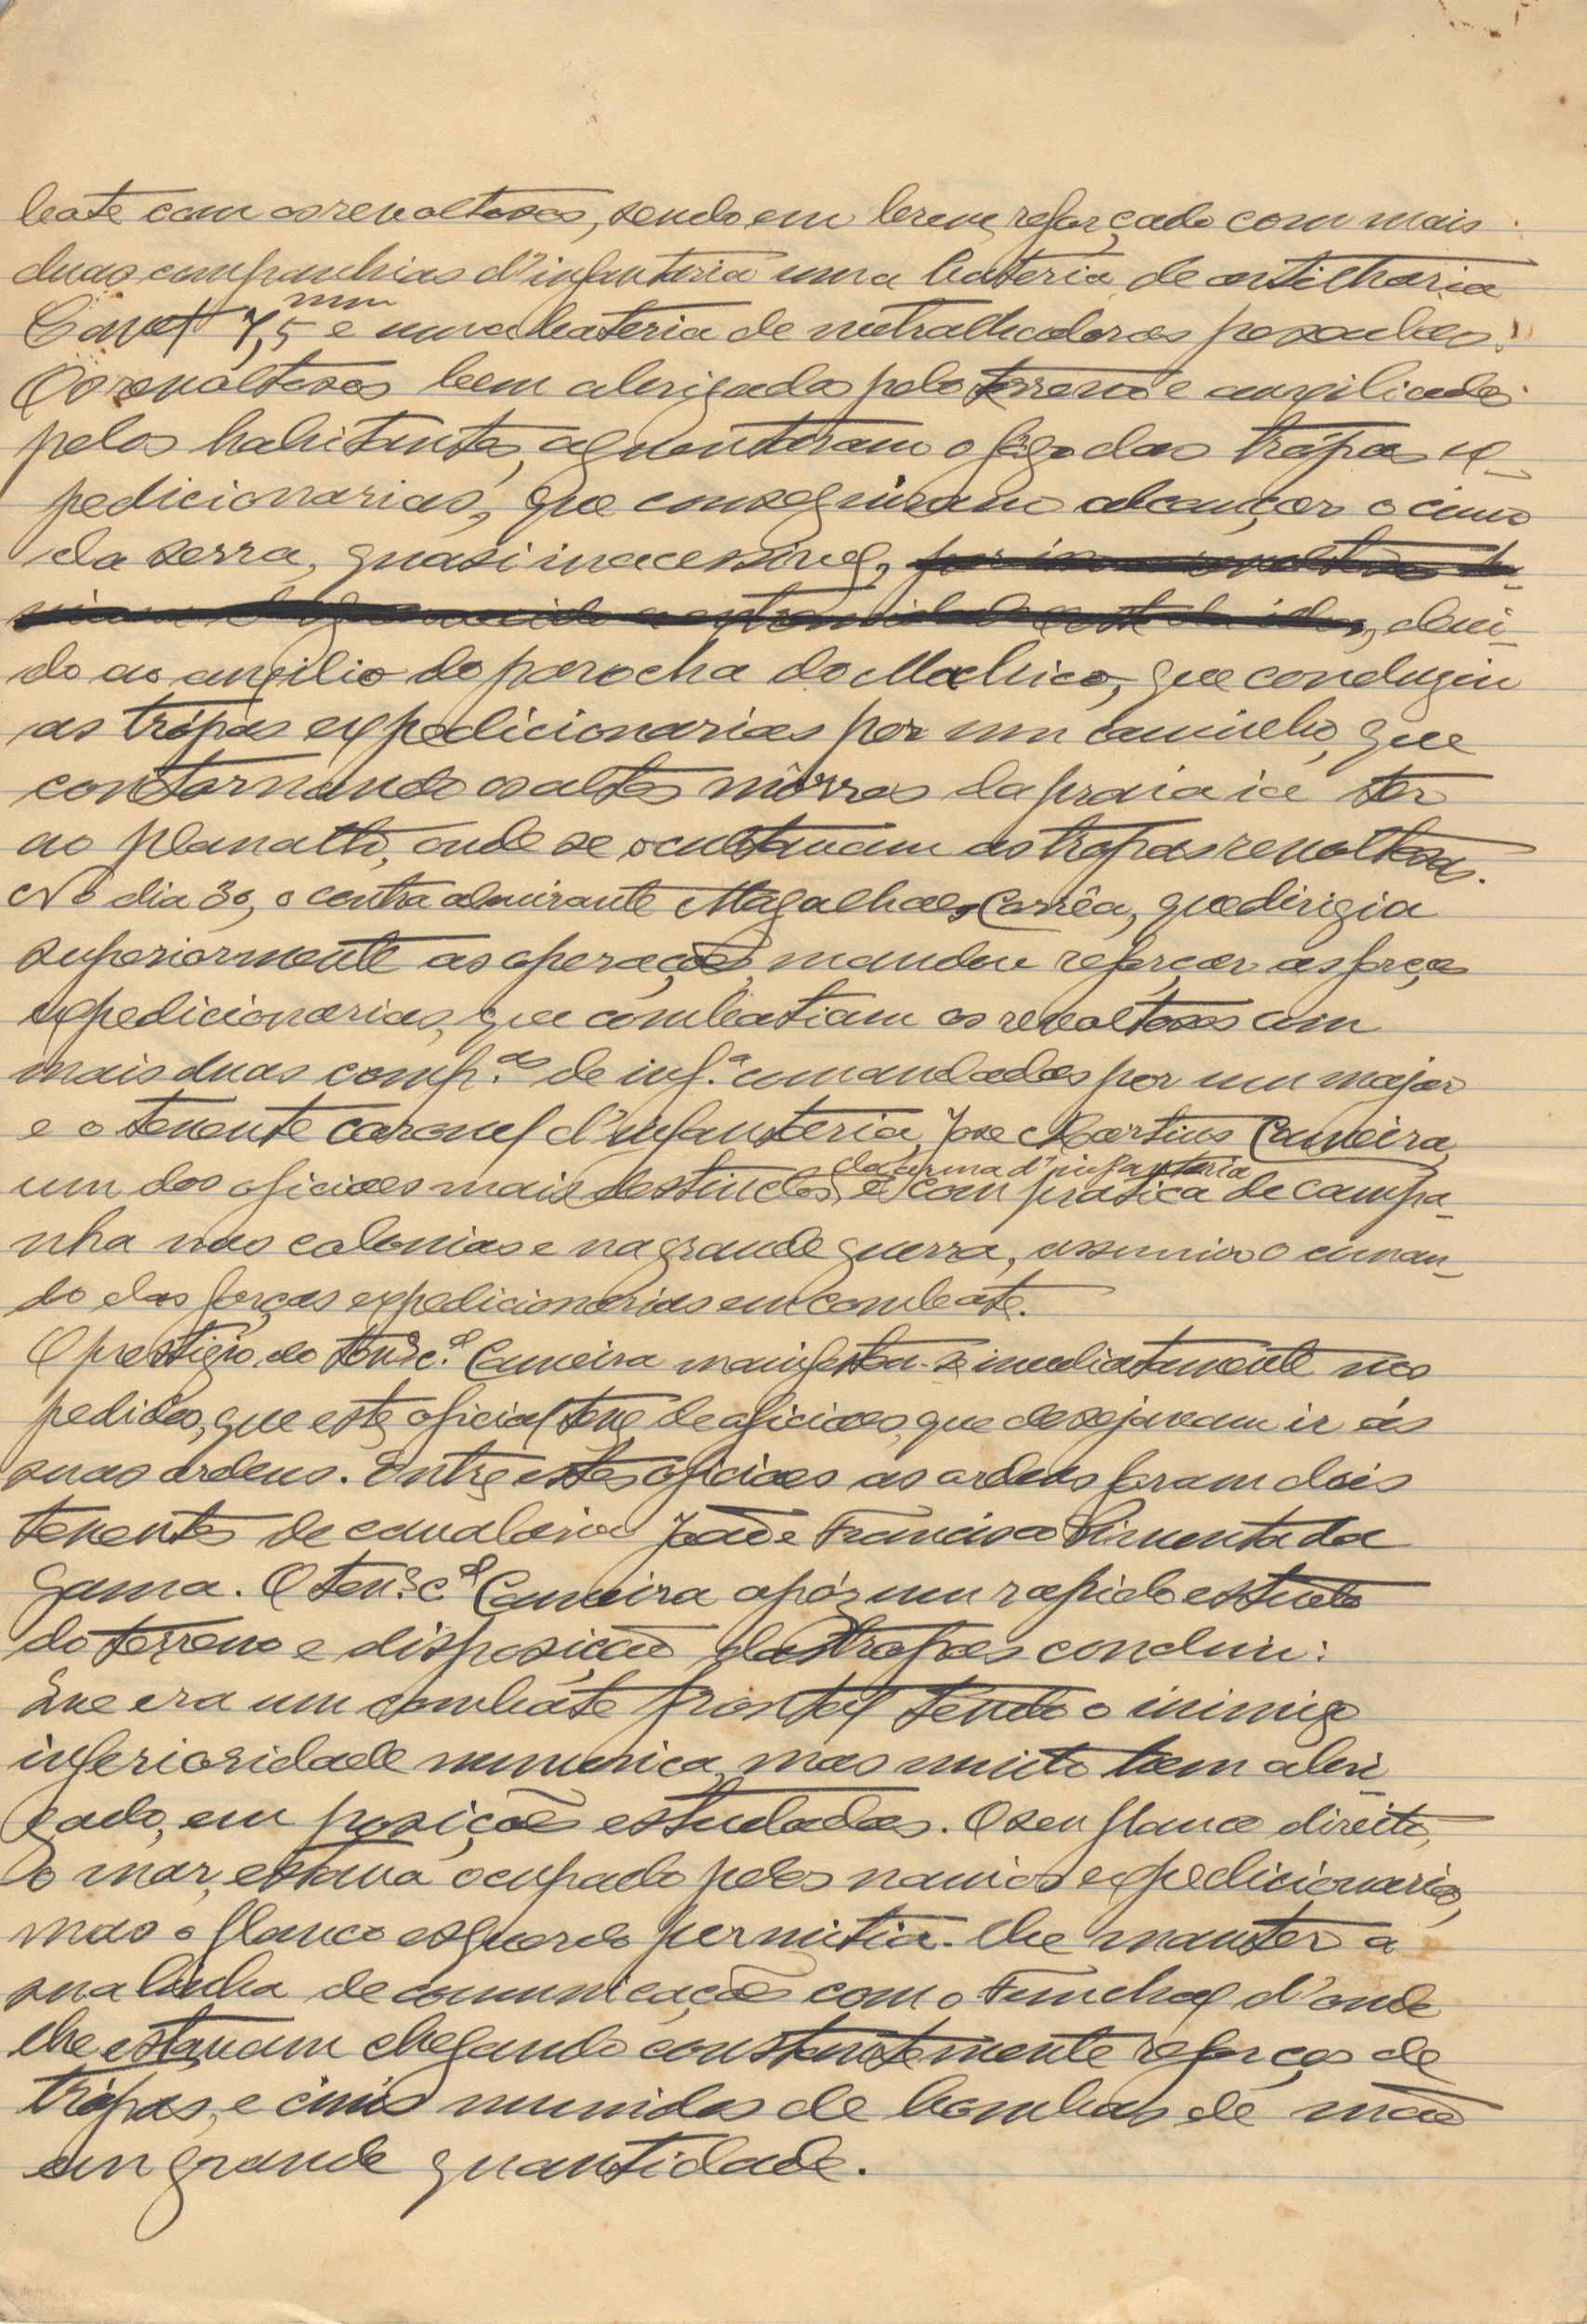 bate com os revoltosos, sendo em breve reforçado com mais
duas companhias d'infanteria uma bateria de artilharia
Canet 7,5 mm e uma bateria de metralhadoras pesadas.
Os revoltosos bem abrigados pelo terreno e auxiliados
pelos habitantes, aguentaram o fogo das trópas ex-
pedicionarias, que conseguiram alcançar o cimo
da serra, quasi inacessivel,
, devi-
do ao auxilio do parocha do Machico, que conduziu
as trópas expedicionarias por um caminho, que
contornando os altos môrros da praia ia ter
ao planalto, onde se ocultavam as tropas revoltosas.
No dia 30, o contra almirante Magalhães Corrêa, que dirigia
superiormente as operações, mandou reforçar as forças
expedicionarias, que combatiam os revoltosos com
mais duas comp.as de inf.a comandadas por um major
e o tenente coronel d'infanteria, José Martins Cameira,
da arma d'infanteria
um dos oficiaes mais destinctos, e com pratica de campa-
nha nas colonias e na grande guerra, assumiu o coman-
do das forças expedicionarias em combate.
O prestigio do ten.e c.el Cameira manifestou-se imediatamente nos
pedidos, que este oficial teve de oficiaes, que desejavam ir ás
suas ordens. Entre estes oficiaes ás ordens foram dois
tenentes de cavalaria João e Francisco Pimenta da
Gama. O ten.e c.el Cameira após um rapido estudo
do terreno e disposição das tropas concluiu:
Que era um combate frontal tendo o inimigo
inferioridade numerica, mas muito bem abri
gado, em posições estudadas. O seu flanco direito,
o mar, estava ocupado pelos navios expedicionarios,
mas o flanco esquerdo permitia-lhe manter a
sua linha de comunicações com o Funchal d'onde
lhe estavam chegando constantemente reforços de
trópas, e civis munidos de bombas de mão
em grande quantidade.